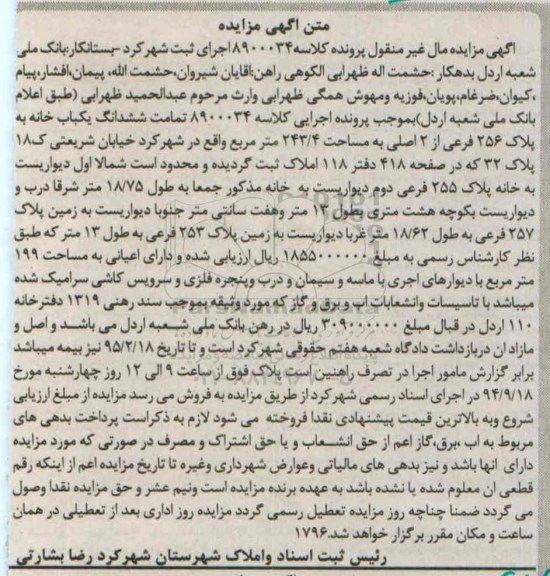 متن آگهی مزایده
آگهی مزایده مال غیر منقول پرونده کلاسه ۸۹۰۰۰۳۴ اجرای ثبت شهرکرد -بستانکار:بانک ملی
شعبه اردل بدهکار :حشمت اله ظهرابی الکوهی راهن:اقایان شیروان،حشمت الله، پیمان،افشار،پیام
،کیوان،ضرغام،پویان،فوزیه ومهوش همگی ظهرابی وارث مرحوم عبدالحمید ظهرابی (طبق اعلام
بانک ملی شعبه اردل)بموجب پرونده اجرایی کلاسه ۸۹۰۰۰۳۴ تمامت ششدانگ یکباب خانه به
پلاک ۲۵۶ فرعی از ۲ اصلی به مساحت ۲۴۳/۴ متر مربع واقع در شهرکرد خیابان شریعتی ک۱۸
پلاک ۳۲ که در صفحه ۴۱۸ دفتر ۱۱۸ املاک ثبت گردیده و محدود است شمالا اول دیواریست
به خانه پلاک ۲۵۵ فرعی دوم دیواریست به خانه مذکور جمعا به طول ۱۸/۷۵ متر شرقا درب و
دیواریست بکوچه هشت متری بطول ۱۳ متر وهفت سانتی متر جنوبا دیواریست به زمین پلاک
۲۵۷ فرعی به طول ۱۸/۶۲ متر غربا دیواریست به زمین پلاک ۲۵۳ فرعی به طول ۱۳ متر که طبق
نظر کارشناس رسمی به مبلغ ۱۸۵۵۰۰۰۰۰۰ ریال ارزیابی شده و دارای اعیانی به مساحت ۱۹۹
متر مربع با دیوارهای اجری با ماسه و سیمان و درب وپنجره فلزی و سرویس کاشی سرامیک شده
میباشد با تاسیسات وانشعابات اب و برق و گاز که مورد وثیقه بموجب سند رهنی ۱۳۱۹ دفترخانه
۱۱۰ اردل در قبال مبلغ ۳۰۹۰۰۰۰۰۰ ریال در رهن بانک ملی شعبه اردل می باشد و اصل و
مازاد ان دربازداشت دادگاه شعبه هفتم حقوقی شهرکرد است و تا تاریخ ۹۵/۲/۱۸ نیز بیمه میباشد
برابر گزارش مامور اجرا در تصرف راهنین است پلاک فوق از ساعت ۹ الی ۱۲ روز چهارشنبه مورخ
۹۴/۹/۱۸ در اجرای اسناد رسمی شهرکرد از طریق مزایده به فروش می رسد مزایده از مبلغ ارزیابی
شروع وبه بالاترین قیمت پیشنهادی نقدا فروخته می شود لازم به ذکراست پرداخت بدهی های
مربوط به اب ،برق،گاز اعم از حق انشعاب و یا حق اشتراک و مصرف در صورتی که مورد مزایده
دارای انها باشد و نیز بدهی های مالیاتی وعوارض شهرداری وغیره تا تاریخ مزایده اعم از اینکه رقم
قطعی ان معلوم شده یا نشده باشد به عهده برنده مزایده است ونیم عشر و حق مزایده نقدا وصول
می گردد ضمنا چناچه روز مزایده تعطیل رسمی گردد مزایده روز اداری بعد از تعطیلی در همان
ساعت و مکان مقرر برگزار خواهد شد.۱۷۹۶
رئیس ثبت اسناد واملاک شهرستان شهرکرد رضا بشارتی